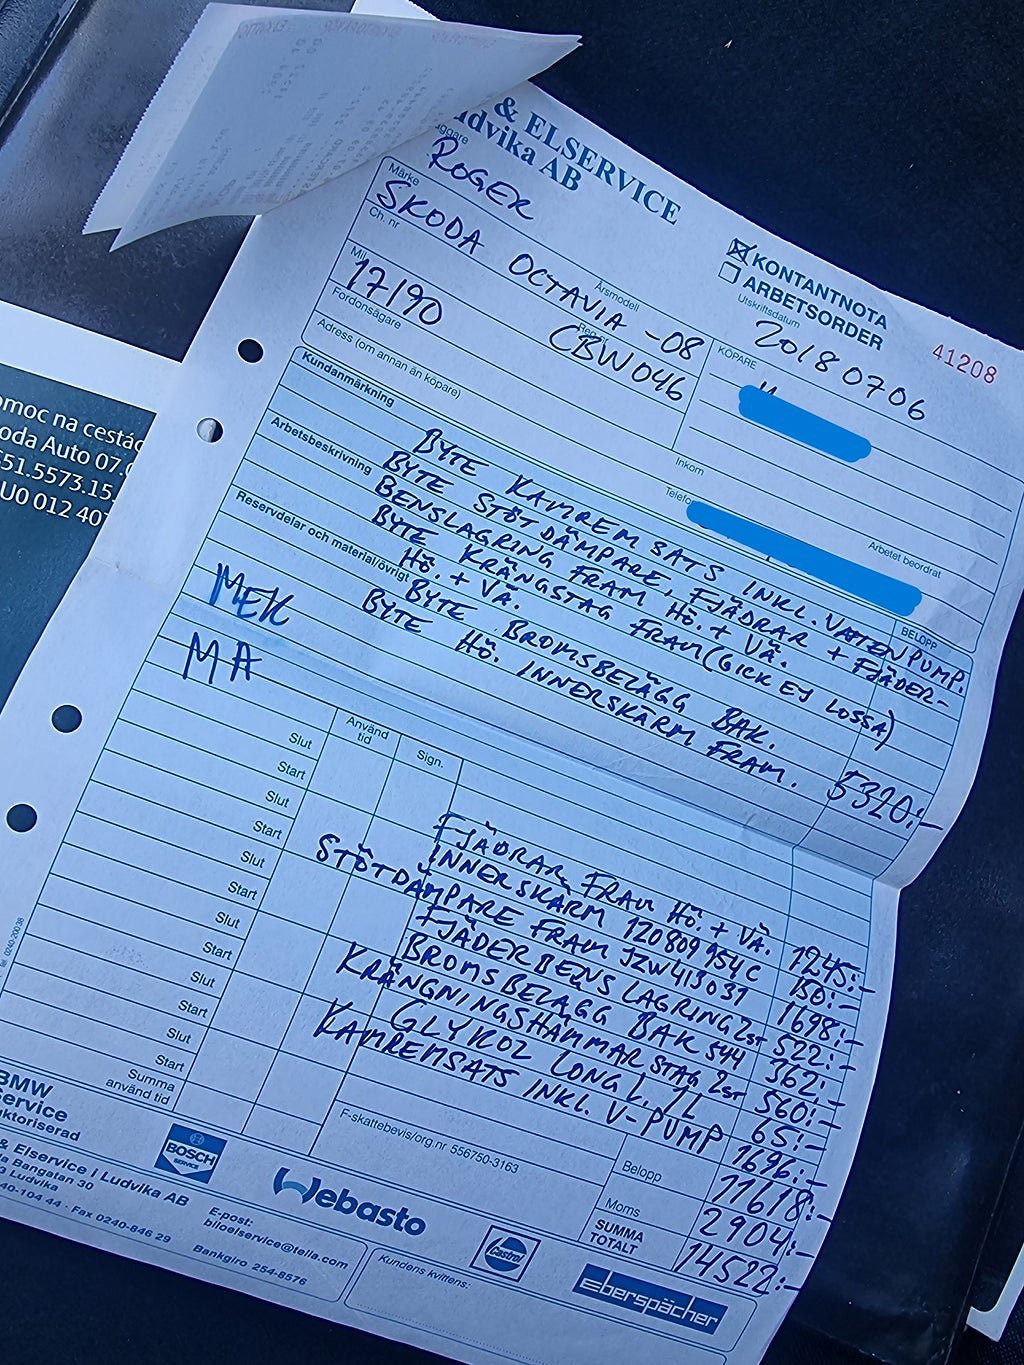 & ELSERVICE
udvika AB
KONTANTNOTA
ARBETSORDER
Utskriftsdatum
20180706
41208
ROGER
Märke
SKODA OCTAVIA -08
Ch. nr
Årsmodell
Mil
17190
CBW046
KÖPARE
Fordonsägare
Adress (om annan än köpare)
Inkom
Telefo
Arbetet beordrat
Kundanmärkning
BELOPP
Arbetsbeskrivning
BYTE KAMREM SATS INKL. VATTENPUMP.
BYTE STÖTDÄMPARE, FJÄDRAR + FJÄDER-
BENSLAGRING FRAM HÖ. + VÄ.
BYTE KRÄNGSTAG FRAM (GICK EJ LOSSA)
HÖ. + VÄ.
BYTE BROMSBELÄGG BAK.
BYTE HÖ. INNERSKÄRM FRAM. 5320:-
Reservdelar och material/övrigt
MEK
MA
Använd tid
Sign.
Slut
Start
Slut
Start
Slut
Start
Slut
Start
Slut
Start
Slut
Start
Summa
använd tid
FJÄDRAR FRAM HÖ. + VÄ. 1245:-
INNERSKÄRM 1Z0809954C 150:-
STÖTDÄMPARE FRAM JZW413031 1698:-
FJÄDERBENSLAGRING 2ST 522:-
BROMSBELÄGG BAK 544 362:-
KRÄNGNINGSHÄMMARSTAG 2ST 560:-
GLYKOL LONG L. 1L 65:-
KAMREMSATS INKL. V-PUMP 1696:-
F-skattebevis/org.nr 556750-3163
Belopp 11618:-
Moms 2904:-
SUMMA
TOTALT 14522:-
BMW
ervice
ktoriserad
BOSCH
SERVICE
Webasto
Castrol
eberspächer
& Elservice i Ludvika AB
a Bangatan 30
3 Ludvika
40-104 44 · Fax 0240-846 29
E-post:
biloelservice@telia.com
Bankgiro 254-8576
Kundens kvittens:
omoc na cestác
oda Auto 07.
51.5573.15
U0 012 407